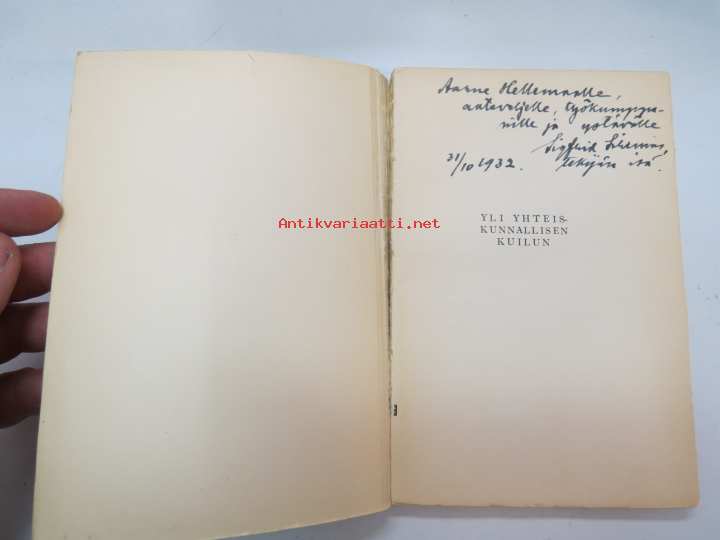 Aarne Hellemaalle,
aateveljelle, työkumppa-
nille ja ystävälle
Sigfrid Sirenius,
31/10 1932. tekijän isä.
Antikvariaatti.net
YLI YHTEIS-
KUNNALLISEN
KUILUN